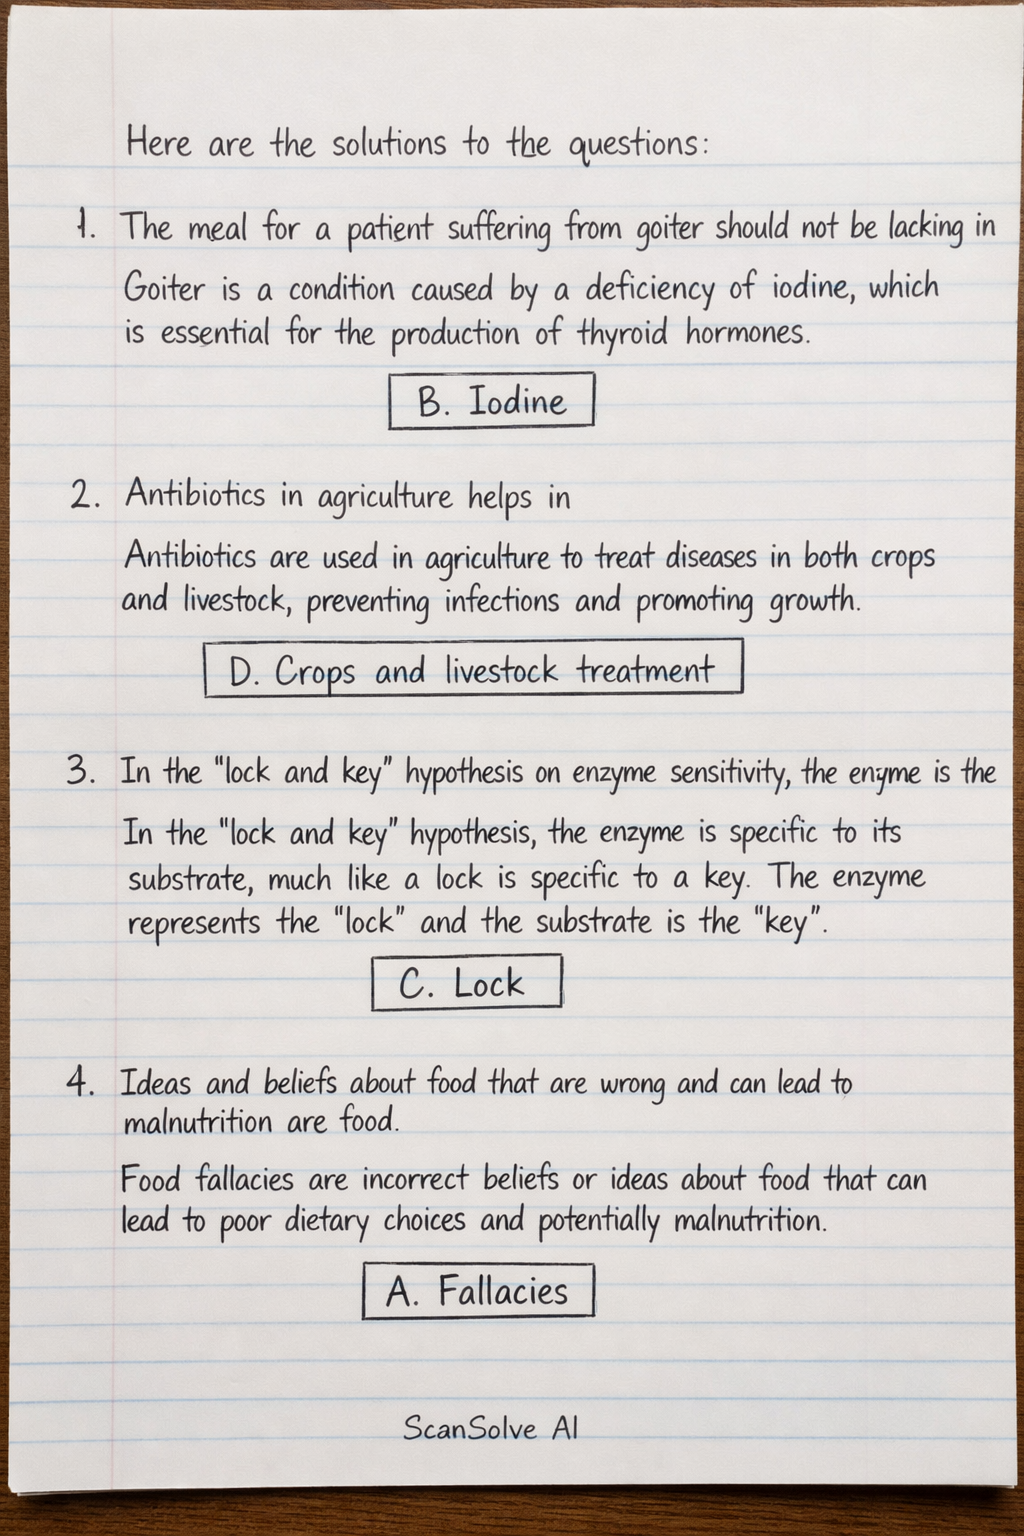 Here are the solutions to the questions:
1. The meal for a patient suffering from goiter should not be lacking in
Goiter is a condition caused by a deficiency of iodine, which
is essential for the production of thyroid hormones.
B. Iodine
2. Antibiotics in agriculture helps in
Antibiotics are used in agriculture to treat diseases in both crops
and livestock, preventing infections and promoting growth.
D. Crops and livestock treatment
3. In the "lock and key" hypothesis on enzyme sensitivity, the enyme is the
In the "lock and key" hypothesis, the enzyme is specific to its
substrate, much like a lock is specific to a key. The enzyme
represents the "lock" and the substrate is the "key".
C. Lock
4. Ideas and beliefs about food that are wrong and can lead to
malnutrition are food.
Food fallacies are incorrect beliefs or ideas about food that can
lead to poor dietary choices and potentially malnutrition.
A. Fallacies
ScanSolve AI